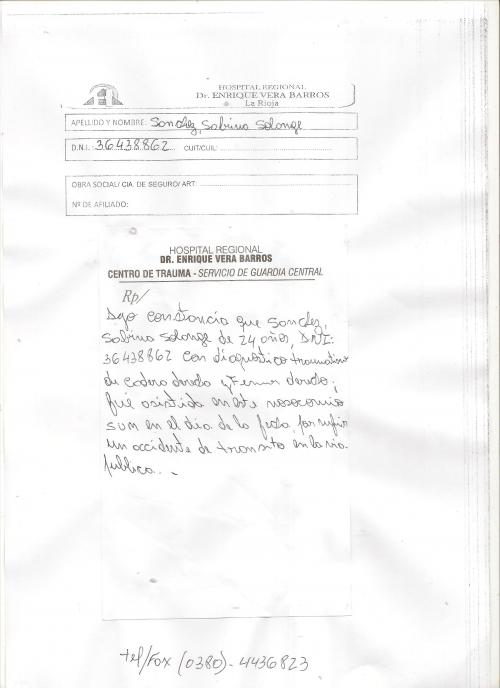 HOSPITAL REGIONAL
Dr. ENRIQUE VERA BARROS
La Rioja
APELLIDO Y NOMBRE: Sanchez, Sabrina Solange
D.N.I.: 36438862 CUIT/CUIL:
OBRA SOCIAL/ CIA. DE SEGURO/ ART:
Nº DE AFILIADO:
HOSPITAL REGIONAL
DR. ENRIQUE VERA BARROS
CENTRO DE TRAUMA - SERVICIO DE GUARDIA CENTRAL
Rp/
Dejo constancia que Sanchez,
Sabrina Solange de 24 años, DNI:
36438862 con diagnostico traumatismo
de cadera derecha y Femur derecho,
fue asistida en este nosocomio
en el dia de la fecha por sufrir
un accidente de transito en la via
publica.
Tel/Fax (0380)- 4436823